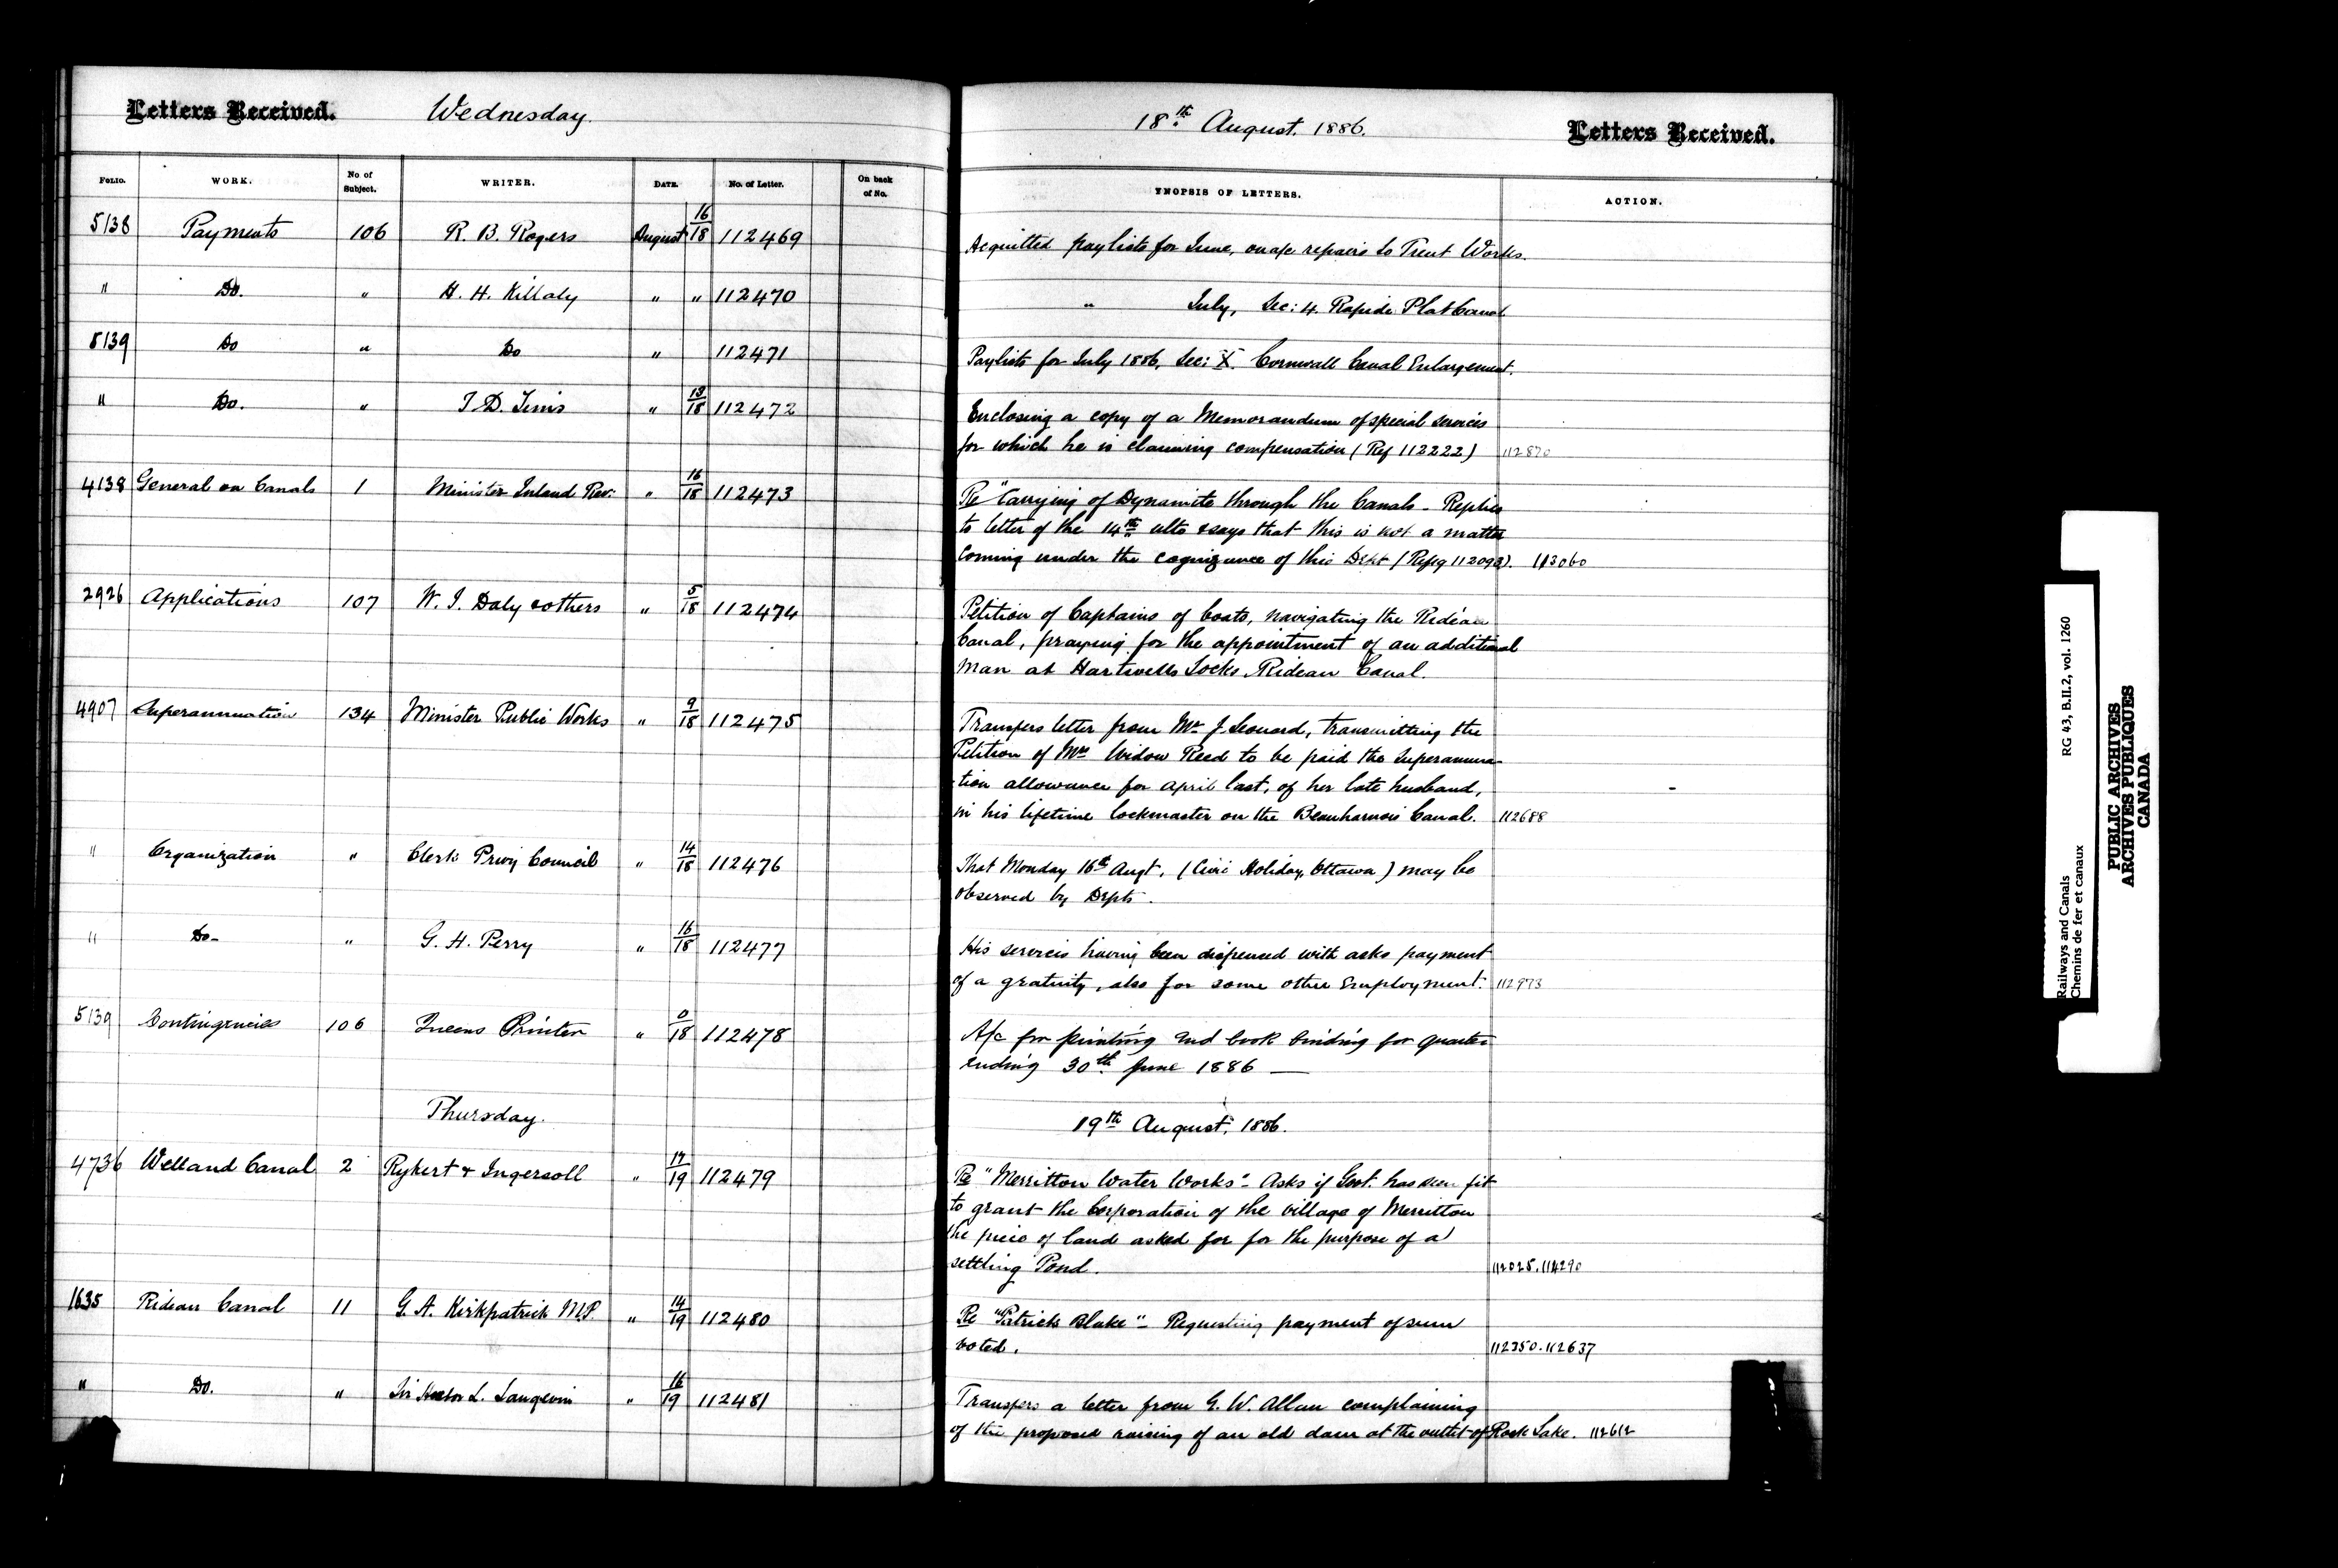 Letters Received. Wednesday. 18th August. 1886. Letters Received.
FOLIO. WORK. No. of Subject. WRITER. DATE. No. of Letter. On back of No. SYNOPSIS OF LETTERS. ACTION.
5138 Payments 106 R. B. Rogers August 16/18 112469 Acquitted paylists for June, on a/c repairs to Trent Works.
" Do. " H. H. Killaly " " 112470 " July, Sec: 4. Rapide Plat Canal
5139 Do " Do " 112471 Paylists for July 1886, Sec: X. Cornwall Canal Enlargement.
" Do. " T. D. " 13/18 112472 Enclosing a copy of a Memorandum of special services
for which he is claiming compensation (Ref 112222) 112870
4138 General on Canals 1 Minister Inland Rev. " 16/18 112473 Re "Carrying of Dynamite through the Canals - Replies
to letter of the 14th ulto & says that this is not a matter
coming under the cognizance of this Dept (Refg 112093). 113060
2926 Applications 107 W. J. Daly & others " 5/18 112474 Petition of Captains of boats, navigating the Rideau
Canal, praying for the appointment of an additional
man at Hartwells Locks, Rideau Canal.
4907 Superannuation 134 Minister Public Works " 9/18 112475 Transfers letter from Mr J. Leonard, transmitting the
Petition of Mrs Widow Reed to be paid the Superannua-
tion allowance for April last, of her late husband,
in his lifetime lockmaster on the Beauharnois Canal. 112688
" Organization " Clerk Privy Council " 14/18 112476 That Monday 16th Augt, (Civic Holiday, Ottawa) may be
observed by Depts.
" Do- " G. H. Perry " 16/18 112477 His services having been dispensed with asks payment
of a gratuity, also for some other Employment. 112973
5139 Contingencies 106 Queens Printer " 0/18 112478 A/c for printing and book binding for quarter
ending 30th June 1886 —
Thursday. 19th August, 1886.
4736 Welland Canal 2 Rykert & Ingersoll " 17/19 112479 Re "Merritton Water Works" - Asks if Govt. has seen fit
to grant the Corporation of the village of Merritton
the piece of land asked for for the purpose of a
settling Pond. 112025. 114290
1635 Rideau Canal 11 G. A. Kirkpatrick M.P. " 14/19 112480 Re "Patrick Blake" - Requesting payment of sum
voted. 112350. 112637
" Do. " Sir Hector L. Langevin " 16/19 112481 Transfers a letter from G. W. Allan complaining
of the proposed raising of an old dam at the outlet of Rock Lake. 112612
Railways and Canals RG 43, B.II.2, vol. 1260
Chemins de fer et canaux
PUBLIC ARCHIVES
ARCHIVES PUBLIQUES
CANADA